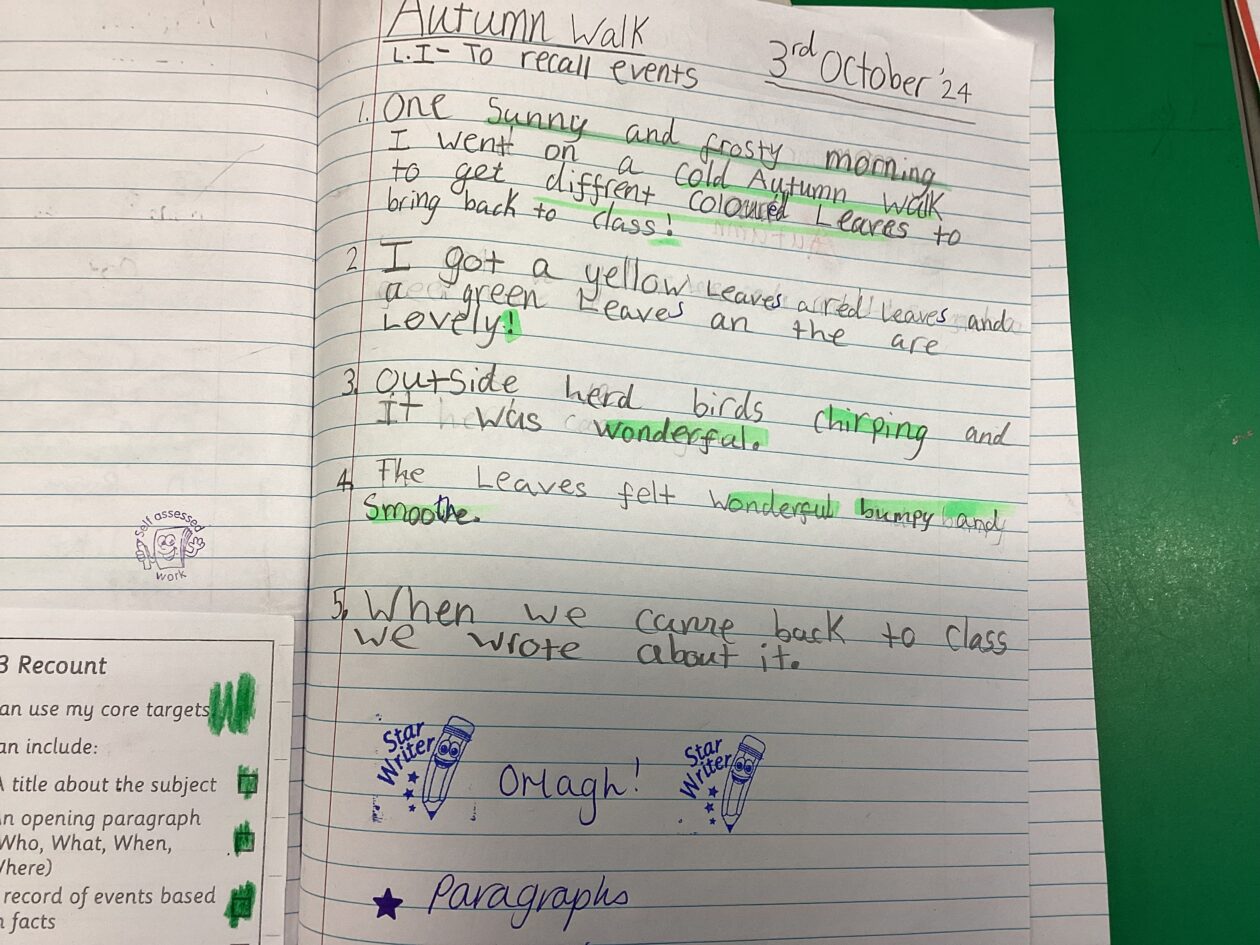 Autumn Walk
L.I- To recall events
3rd October '24
1. One Sunny and frosty morning
I went on a cold Autumn walk
to get diffrent coloured Leaves to
bring back to class!
2 I got a yellow Leaves a red leaves and
a green Leaves an the are
Lovely!
3. Outside herd birds chirping and
It was wonderful.
4. The Leaves felt wonderful bumpy and
Smoothe.
5. When we came back to class
we wrote about it.
Star Writer
Omagh!
Star Writer
Paragraphs
Self assessed
work
3 Recount
an use my core targets
an include:
A title about the subject
An opening paragraph
Who, What, When,
here)
record of events based
n facts